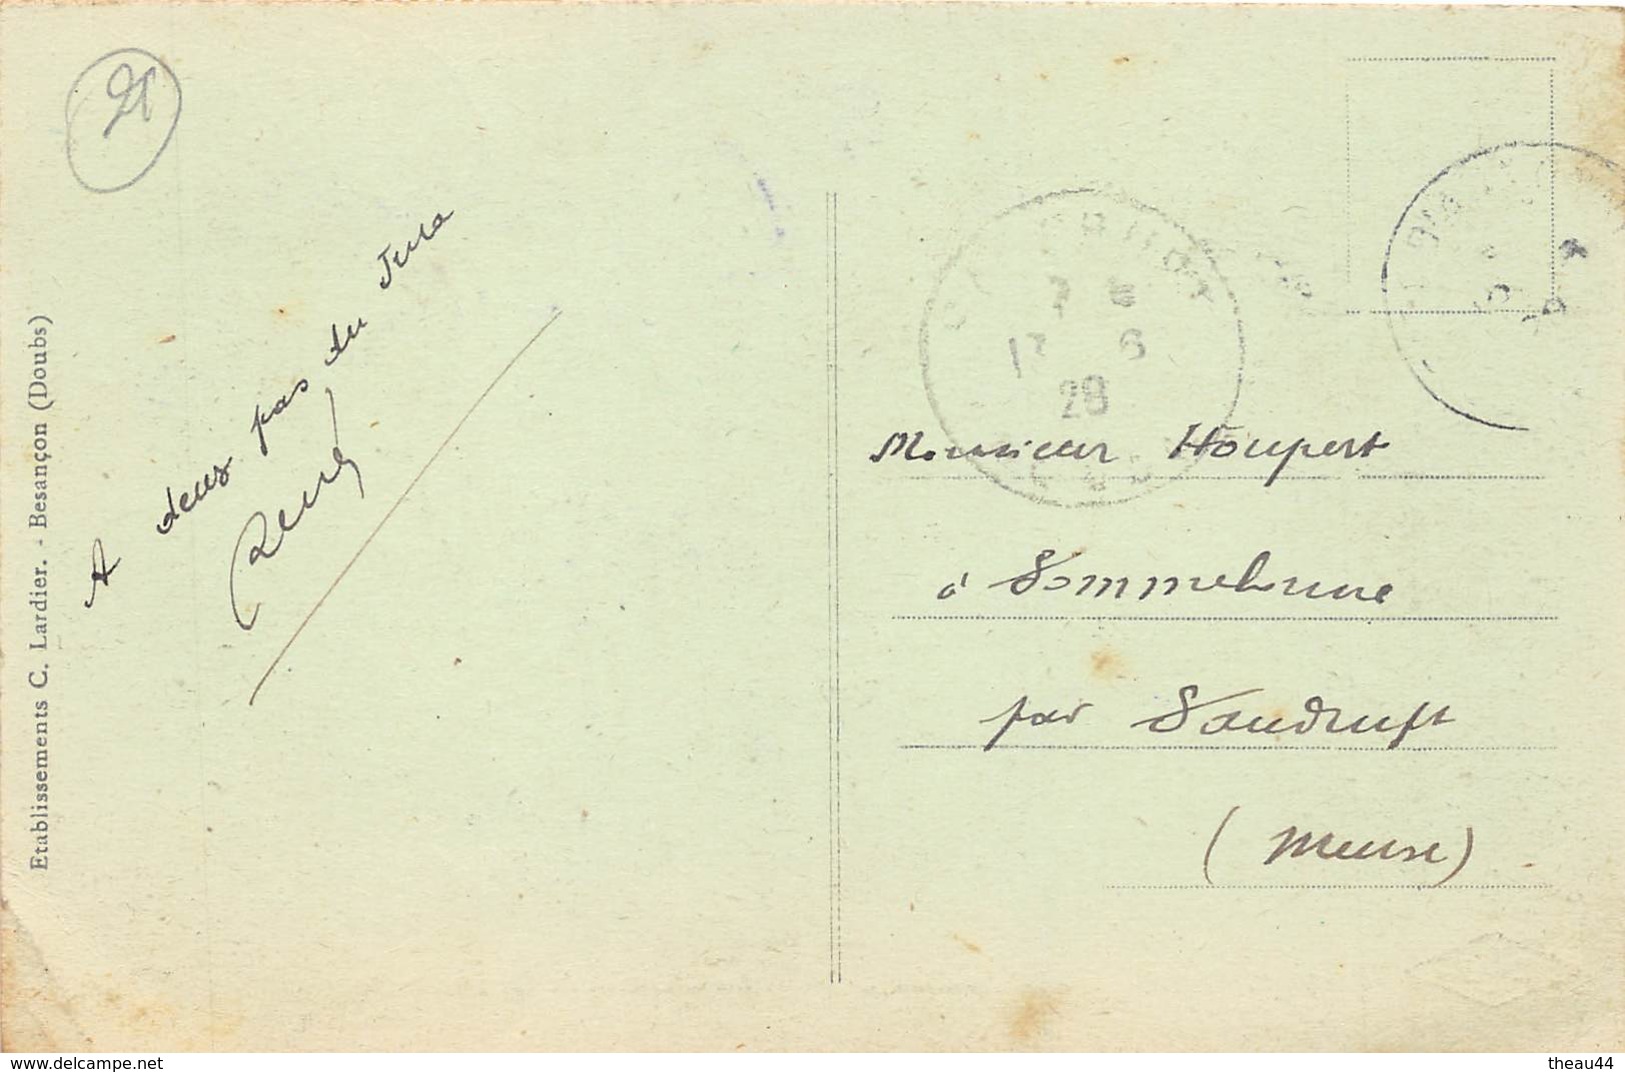 21
A deux pas du Jura
René
Etablissements C. Lardier. - Besançon (Doubs)
7
17 6
28
Monsieur Houpert
à Sommelonne
par Saudrupt
(Meuse)
www.delcampe.net
theau44